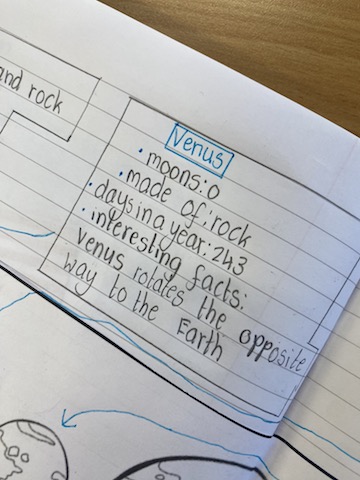 and rock
Venus
• moons: 0
• made of: rock
• days in a year: 243
• interesting facts:
Venus rotates the opposite
way to the Earth